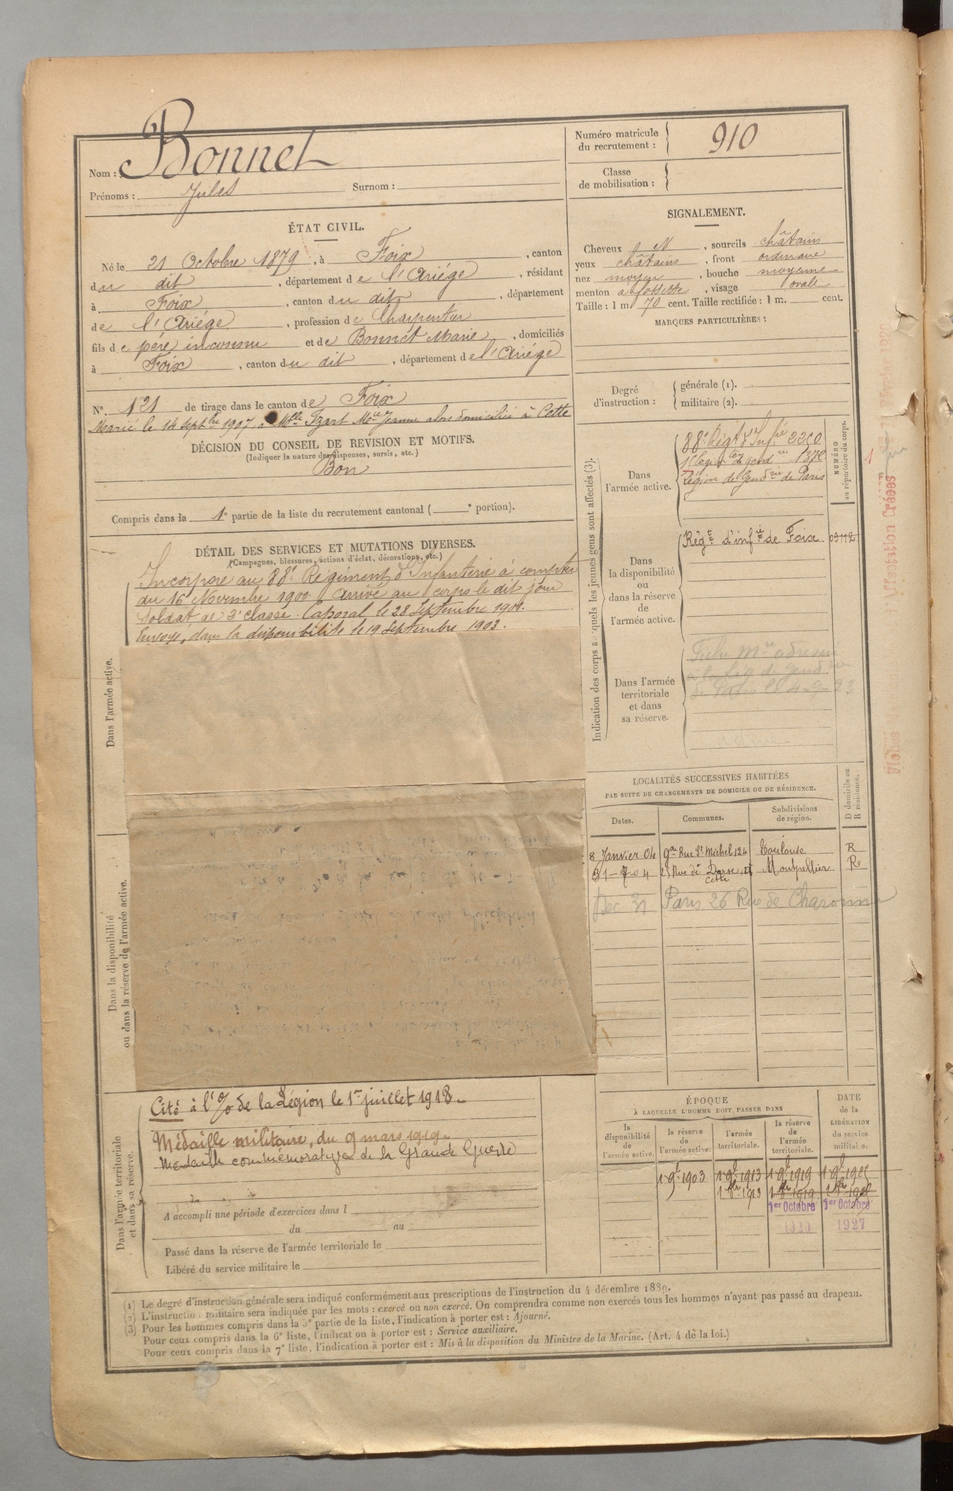 Nom : Bonnet
Prénoms : Jules Surnom :
Numéro matricule du recrutement : 910
Classe de mobilisation :
ÉTAT CIVIL.
Né le 21 Octobre 1879, à Foix, canton
du dit, département de l'Ariége, résidant
à Foix, canton du dit, département
de l'Ariége, profession de Charpentier
fils de père inconnu et de Bonnet Marie, domiciliés
à Foix, canton du dit, département de l'Ariége
N° 121 de tirage dans le canton de Foix
Marié le 14 Septbre 1907, à Mlle Jeanne alors domiciliée à Cette
DÉCISION DU CONSEIL DE REVISION ET MOTIFS.
(Indiquer la nature des dispenses, sursis, etc.)
Bon
Compris dans la 1e partie de la liste du recrutement cantonal ( e portion).
SIGNALEMENT.
Cheveux, sourcils châtains
yeux châtains, front ordinaire
nez moyen, bouche moyenne
menton à fossette, visage ovale
Taille : 1 m. 70 cent. Taille rectifiée : 1 m. cent.
MARQUES PARTICULIÈRES :
Degré d'instruction :
générale (1).
militaire (2).
DÉTAIL DES SERVICES ET MUTATIONS DIVERSES.
(Campagnes, blessures, actions d'éclat, décorations, etc.)
Dans l'armée active.
Incorporé au 88e Régiment d'Infanterie à compter
du 16 Novembre 1900. Arrivé au corps le dit jour
Soldat de 2e classe. Caporal le 28 Septembre 1901.
Envoyé dans la disponibilité le 19 Septembre 1903.
Dans la disponibilité ou dans la réserve de l'armée active.
Dans l'armée territoriale et dans sa réserve.
Cité à l'o/ de la Légion le 1er juillet 1918.
Médaille militaire, du 9 mars 1919.
Médaille commémorative de la Grande Guerre
A accompli une période d'exercices dans l
du au
Passé dans la réserve de l'armée territoriale le
Libéré du service militaire le
Indication des corps auxquels les jeunes gens sont affectés (3).
NUMÉRO au répertoire du corps.
Dans l'armée active.
88e Régt d'Infie 2250
Légion de Gendrie de Paris
Dans la disponibilité ou dans la réserve de l'armée active.
Régt d'infie de Foix
Dans l'armée territoriale et dans sa réserve.
LOCALITÉS SUCCESSIVES HABITÉES
PAR SUITE DE CHANGEMENTS DE DOMICILE OU DE RÉSIDENCE.
Dates. Communes. Subdivisions de région. D domicile ou R résidence.
8 Janvier 04 Gde Rue St Michel 124 Toulouse R
Cette Montpellier R
Dec 31 Paris 26 Rue de Charonne
ÉPOQUE
À LAQUELLE L'HOMME DOIT PASSER DANS
la disponibilité de l'armée active.
la réserve de l'armée active.
l'armée territoriale.
la réserve de l'armée territoriale.
DATE de la LIBÉRATION du service militaire.
1 9bre 1903 1 9bre 1913 1 9bre 1919
1er Octobre 1er Octobre
1927
(1) Le degré d'instruction générale sera indiqué conformément aux prescriptions de l'instruction du 4 décembre 1889.
(2) L'instruction militaire sera indiquée par les mots : exercé ou non exercé. On comprendra comme non exercés tous les hommes n'ayant pas passé au drapeau.
(3) Pour les hommes compris dans la 5e partie de la liste, l'indication à porter est : Ajourné.
Pour ceux compris dans la 6e liste, l'indication à porter est : Service auxiliaire.
Pour ceux compris dans la 7e liste, l'indication à porter est : Mis à la disposition du Ministre de la Marine. (Art. 4 de la loi.)